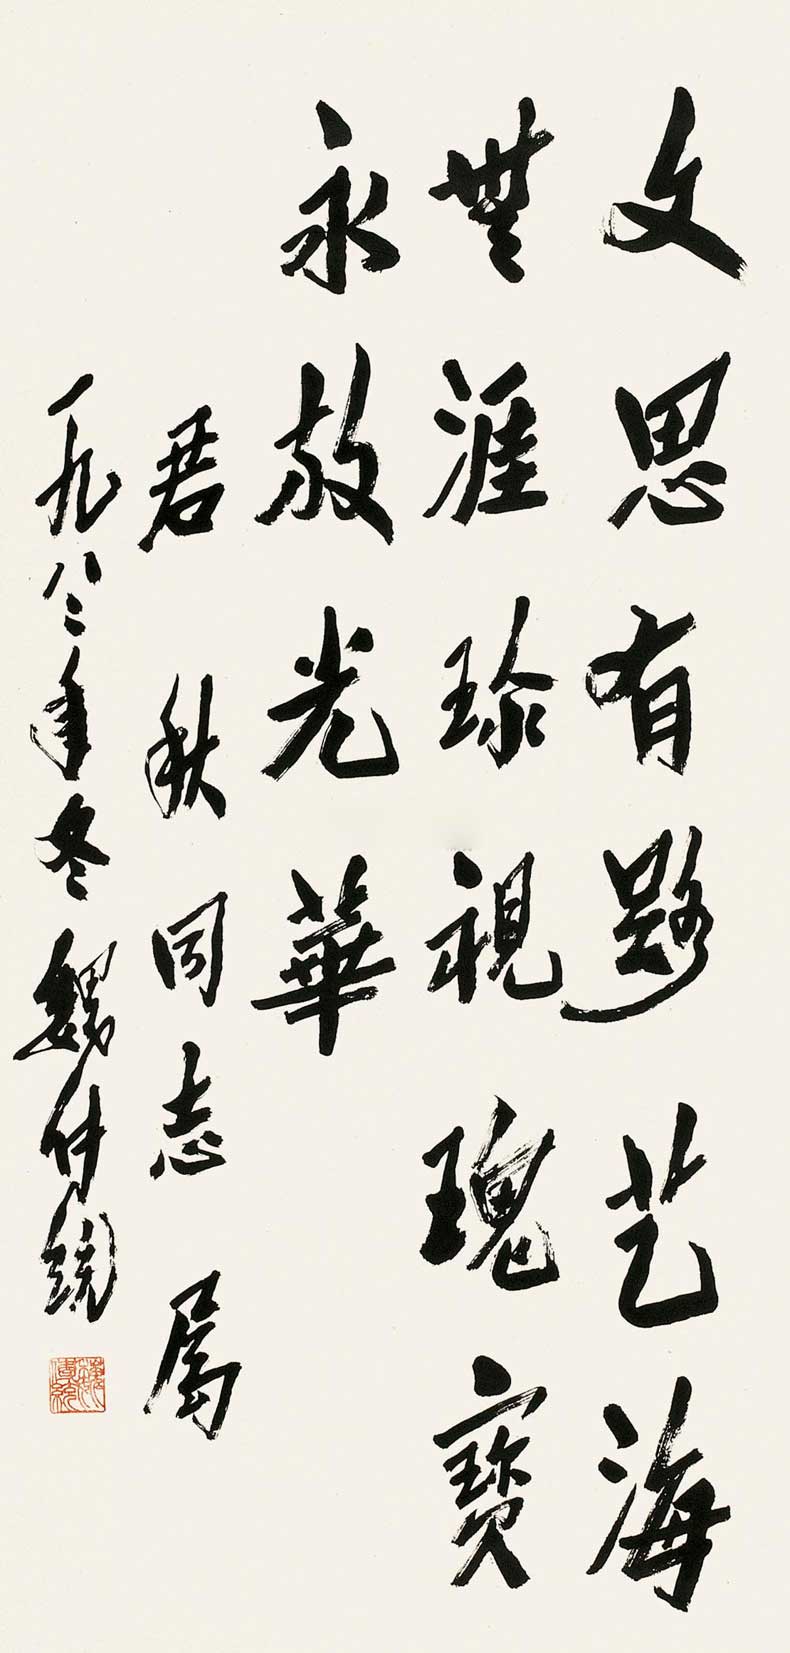 文思有路艺海
無涯珍視瑰寶
永放光華
君秋同志属
一九八二年冬魏传统